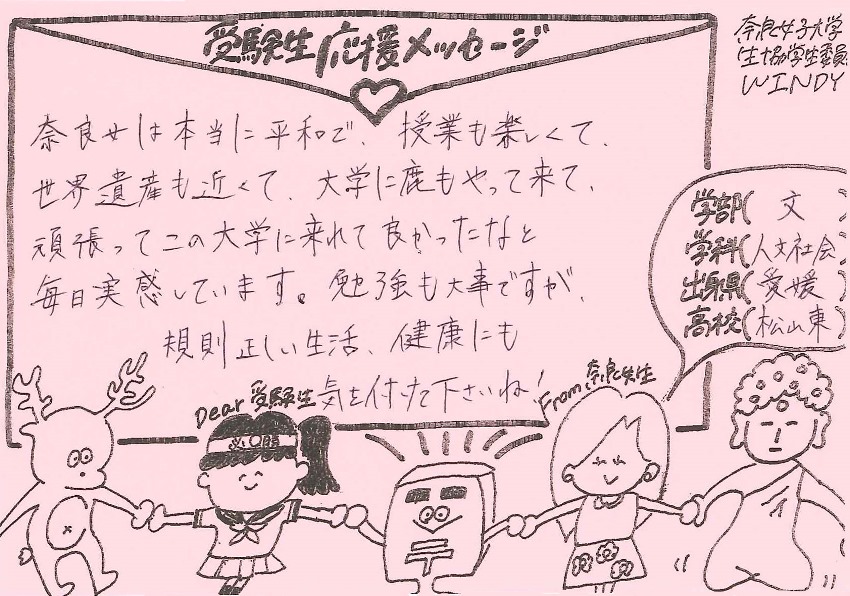 受験生応援メッセージ
奈良女子大学
生協学生委員
WINDY
奈良女は本当に平和で、授業も楽しくて、
世界遺産も近くて、大学に鹿もやって来て、
頑張ってこの大学に来れて良かったなと
毎日実感しています。勉強も大事ですが、
規則正しい生活、健康にも
気を付けて下さいね!
学部( 文 )
学科(人文社会)
出身県(愛媛)
高校(松山東)
Dear 受験生
From 奈良女生
必〇勝
〒